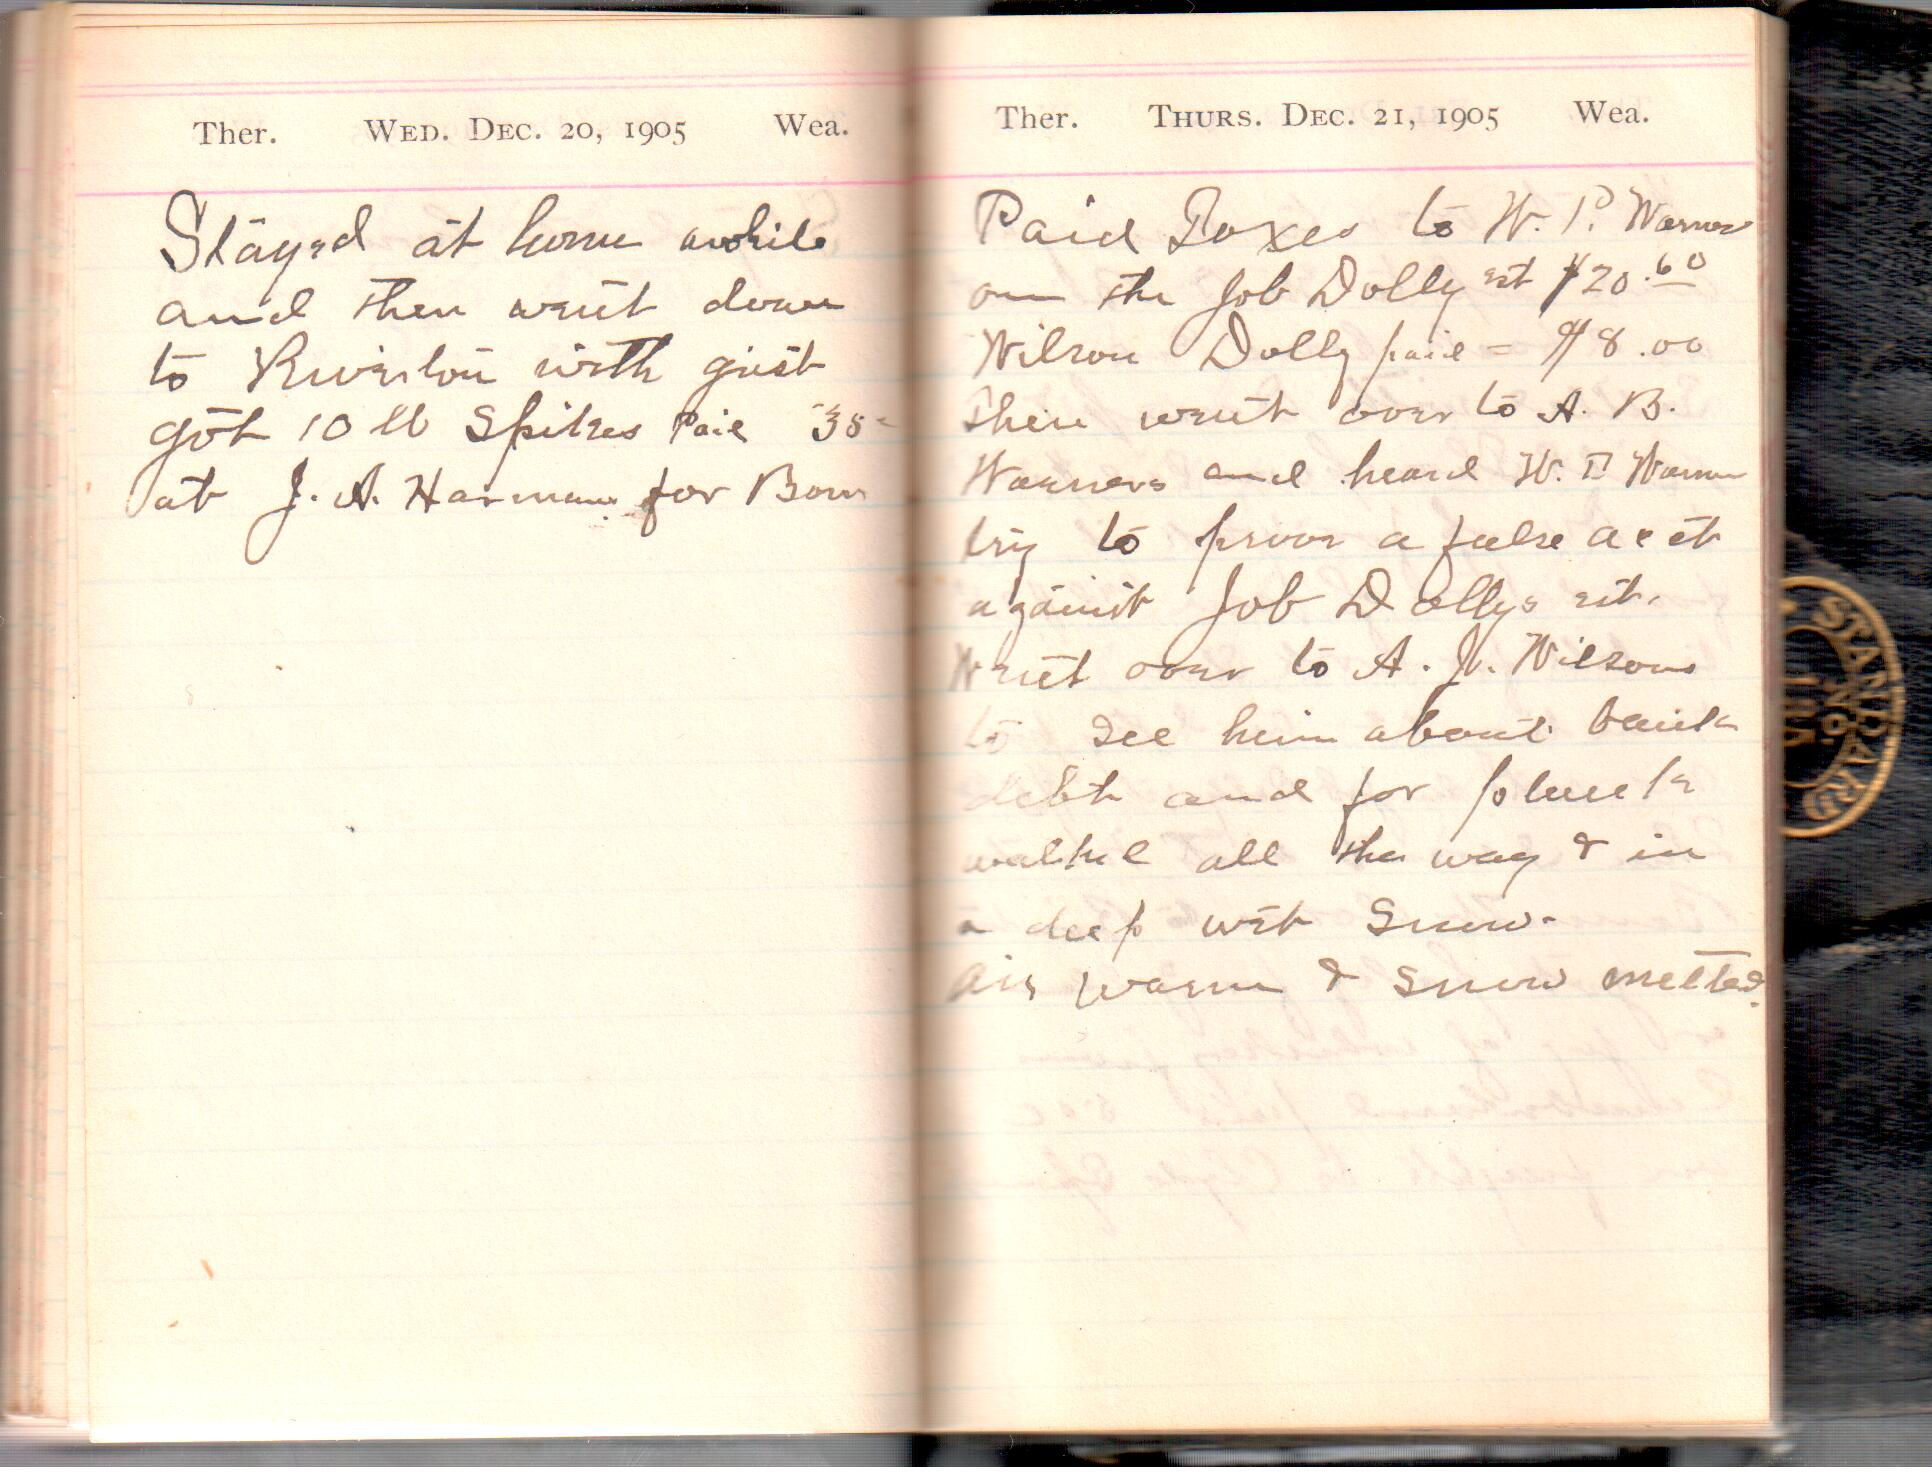 Ther. WED. DEC. 20, 1905 Wea.
Stayed at home awhile
and then went down
to Riverton with grist
got 10 lb Spikes Paid 35
at J. A. Harmans for Barn
Ther. THURS. DEC. 21, 1905 Wea.
Paid Taxes to W. P. Warner
on the Job Dolly est $20.60
Wilson Dolly paid = $8.00
Then went over to A. B.
Warners and heard W. P. Warner
try to prove a false acct
against Job Dollys est.
Went over to A. J. Wilsons
to see him about bank
debt and for plank
walked all the way & in
a deep wet Snow.
Air warm & Snow melted.
STANDARD
NO.